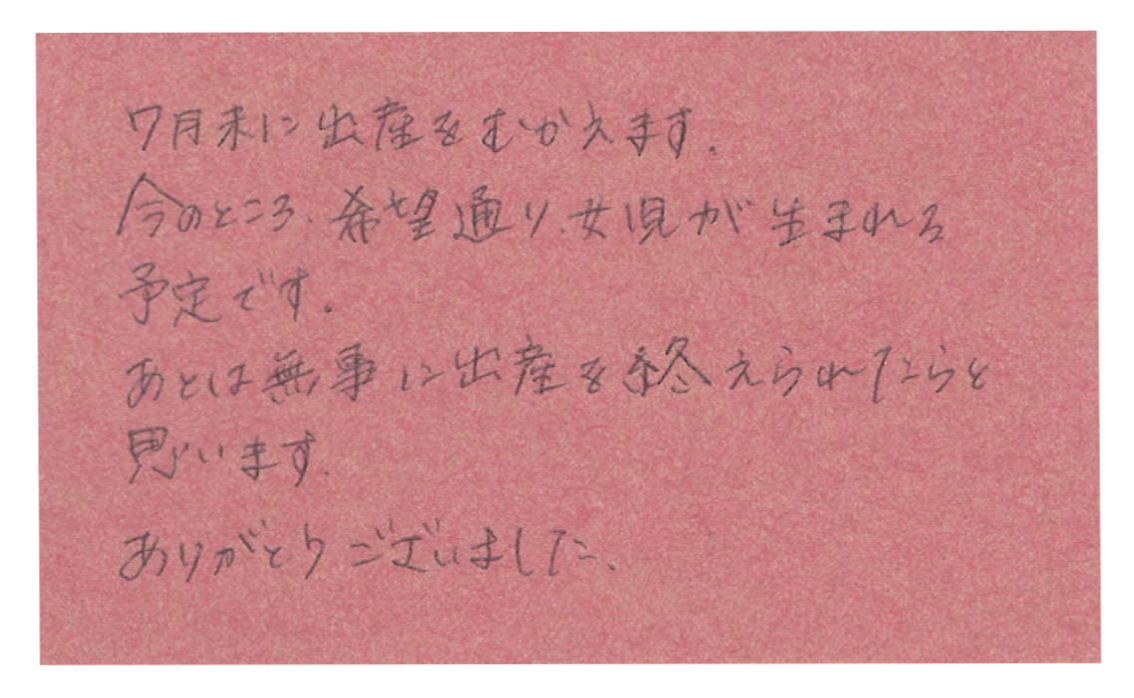 7月末に出産をむかえます.
今のところ、希望通り、女児が生まれる
予定です.
あとは無事に出産を終えられたらと
思います.
ありがとうございました、